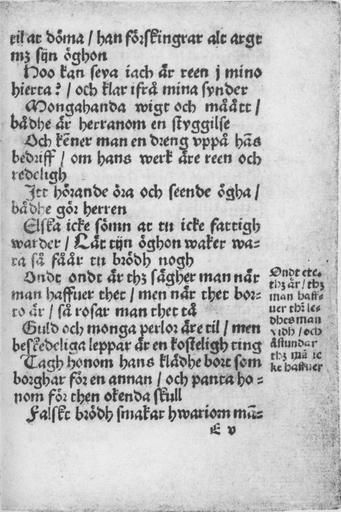 til at döma / han förskingrar alt argt
mz sijn öghon
Hoo kan seya iach är reen j mino
hierta? / och klar ifrå mina synder
Mongahanda wigt och määtt /
bådhe är herranom en styggilse
Och kenner man en dreng vppå hãs
bedriff / om hans werk äre reen och
redeligh
Itt hörande öra och seende ögha /
bådhe gör herren
Elska icke sömn at tu icke fattigh
warder / Låt tijn öghon waker wa=
ra så fåår tu brödh nogh
Ondt ondt är thz sägher man når
man haffuer thet / men når thet bor=
to är / så rosar man thet tå
Guld och monga perlor äre til / men
beskedeliga leppar är en kosteligh ting
Tagh honom hans klädhe bort som
borghar för en annan / och panta ho=
nom för then okenda skull
Falskt brödh smakar hwariom mã=
E v
Ondt etc.
thz är / thz
man haff=
uer thz le=
dhes man
vidh / och
åstundar
thz mã ic
ke haffuer